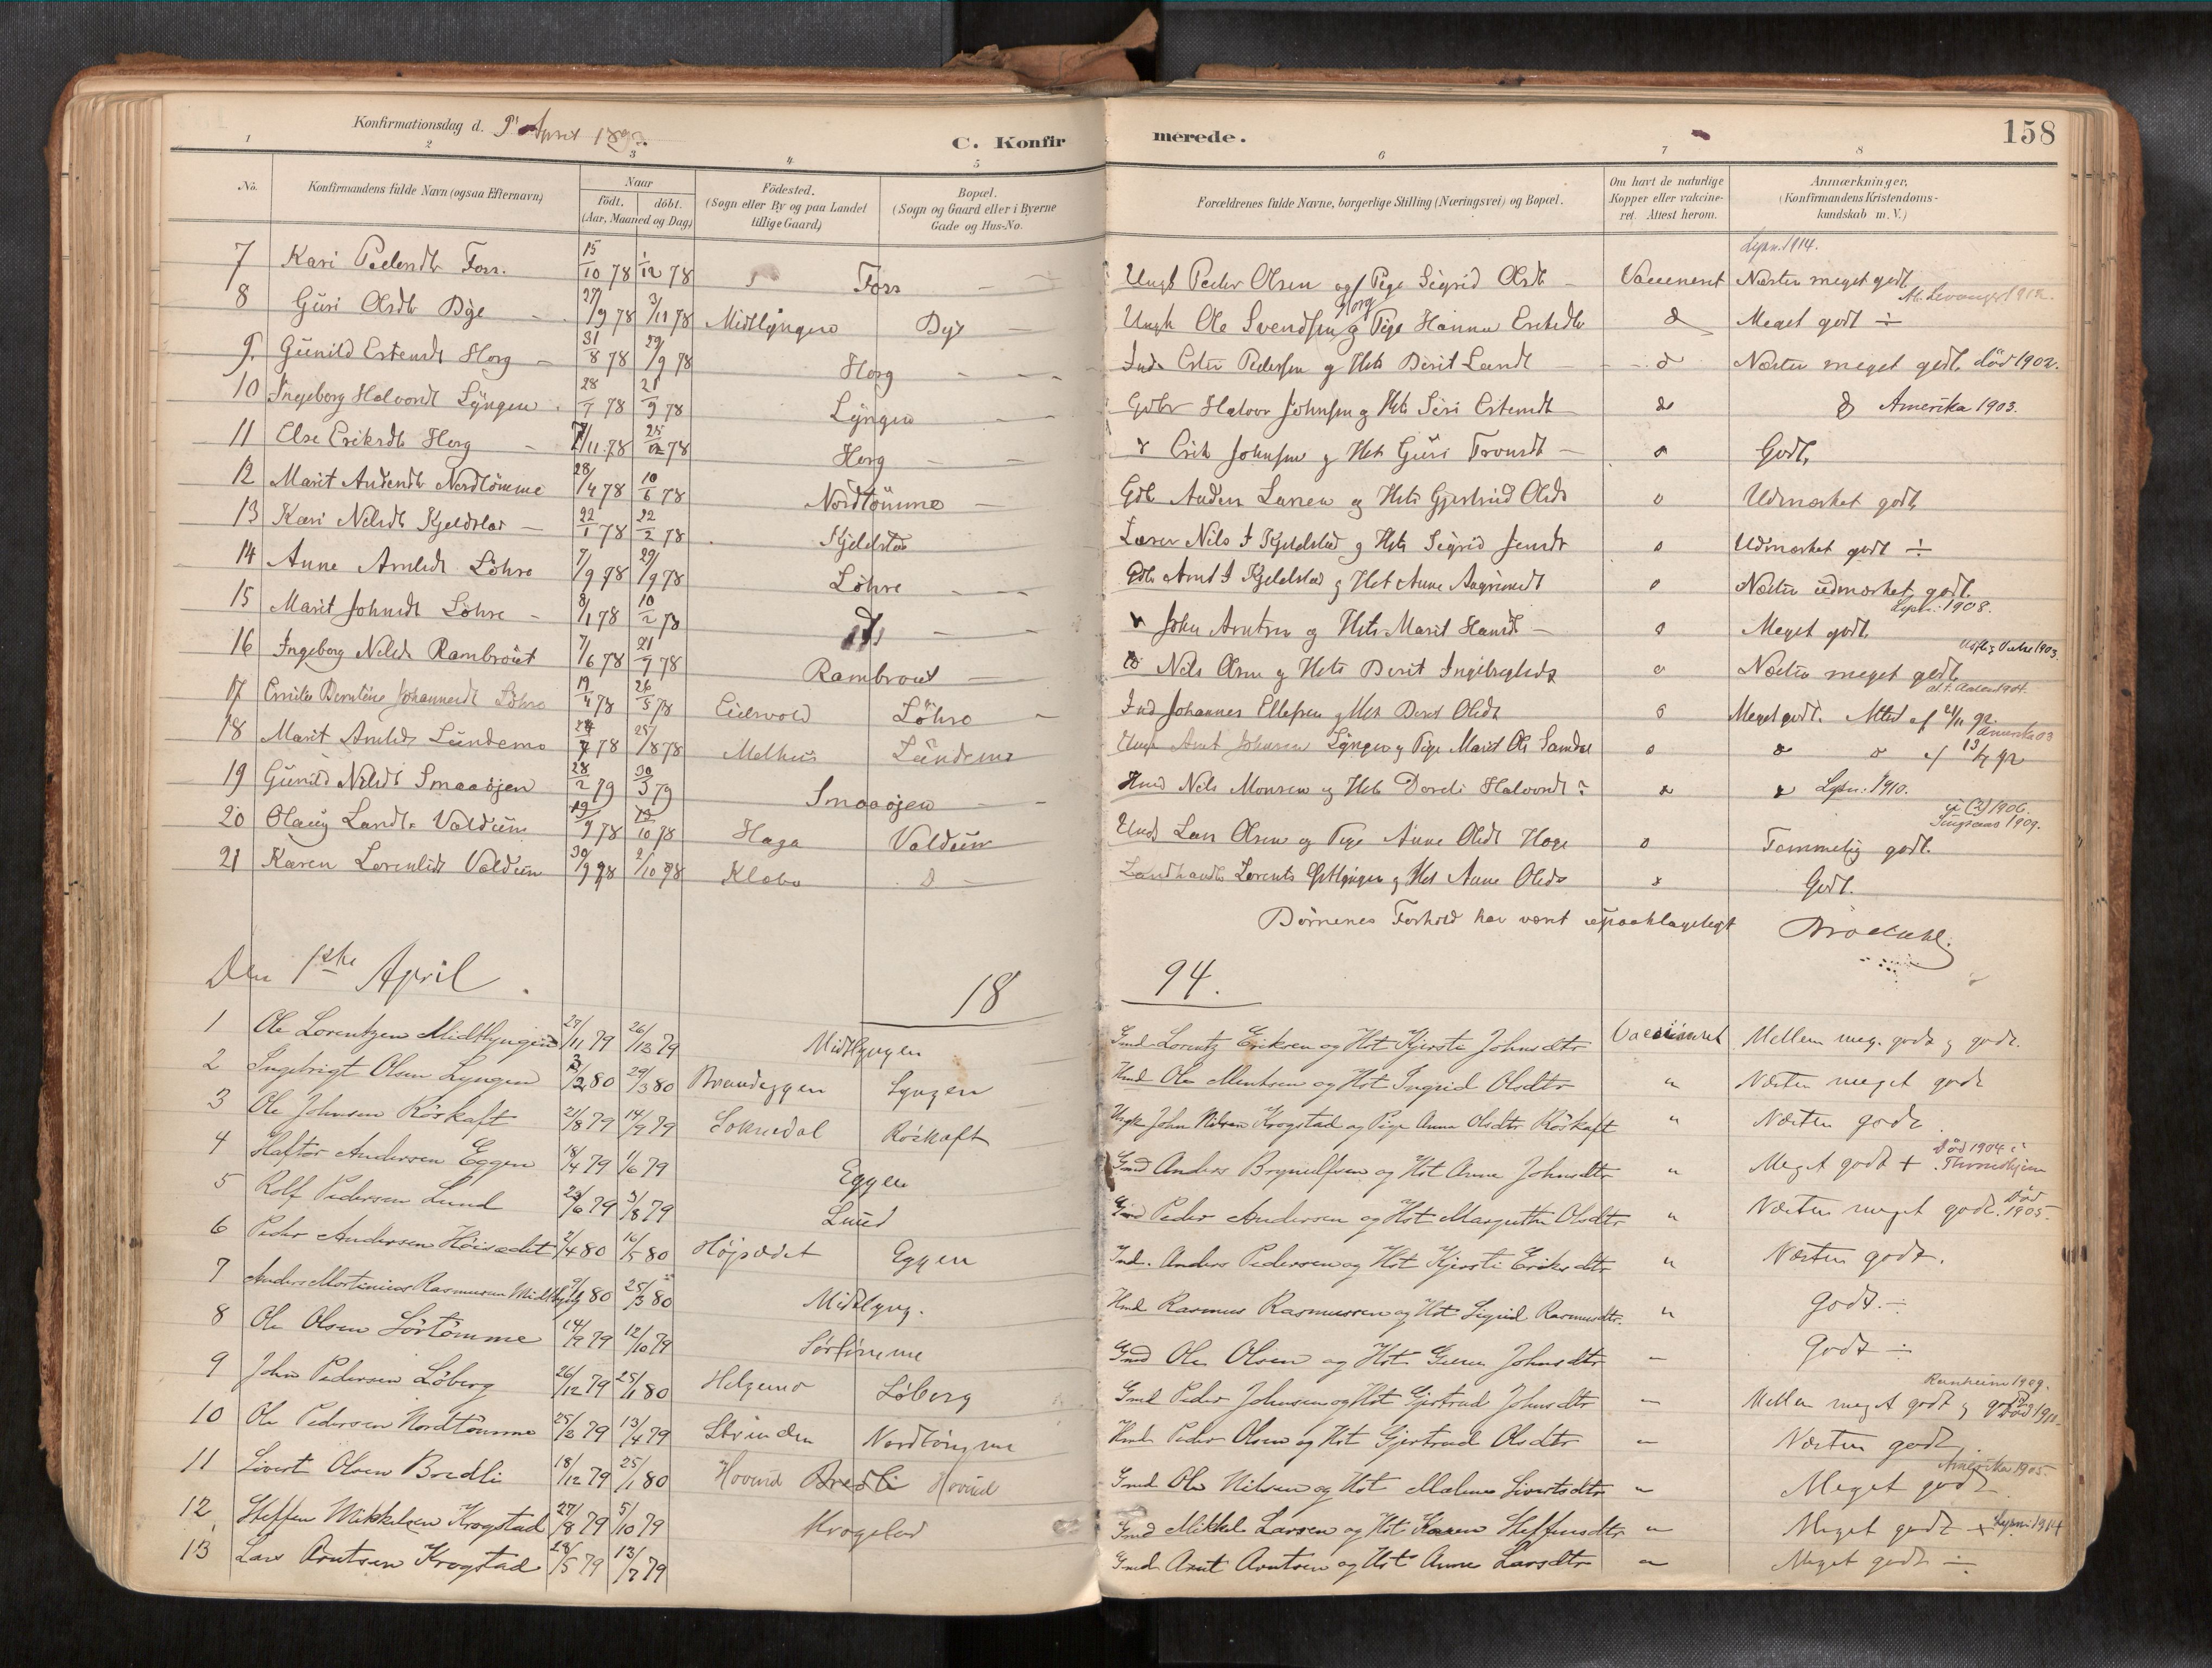 Konfirmationsdag d. April 189
C. Konfirmerede.
158
1 2 3 4 5 6 7 8
No. Konfirmandens fulde Navn (ogsaa Efternavn) Naar født. døbt. (Aar, Maaned og Dag) Födested. (Sogn eller By og paa Landet tillige Gaard) Bopæl. (Sogn og Gaard eller i Byerne Gade og Hus-No. Forældrenes fulde Navne, borgerlige Stilling (Næringsvei) og Bopæl. Om havt de naturlige Kopper eller vaccineret. Attest herom. Anmærkninger. (Konfirmandens Kristendomskundskab m. V.)
7 Kari Pedersdt Foss. 15/10 78 1/12 78 Foss Ungk Peder Olsen og Pige Sigrid Olsdt Vaccineret Næsten meget godt Lysn. 1914.
8 Guri Olsdt Dye 27/9 78 3/11 78 Midtlyngen Dye Ungk Ole Svendsen Horg og Pige Hanna Eriksdtr Meget godt ÷ Levanger
9. Gunild Estensdt Horg 31/8 78 29/9 78 Horg Ind. Esten Pedersen og Hst Berit Larsdt Næsten meget godt. død 1902.
10 Ingeborg Halvorsdt Lyngen 28/7 78 21/9 78 Lyngen Gdbr Halvor Johnsen og Hst Siri Estensdt Amerika 1903.
11 Else Eriksdt Horg /11 78 25/12 78 Horg Erik Johnsen og Hst Guri Tronsdt Godt,
12 Marit Andersdt Nordtömme 28/4 78 10/6 78 Nordtömme Gdb Anders Larsen og Hst Gjertrud Olsdt Udmærket godt
13 Kari Nilsdt Kjeldstad 22/1 78 22/2 78 Kjeldstad Nils Kjeldstad og Hst Sigrid Jensdt Udmærket godt ÷
14 Anne Arntsdt Löhre 7/9 78 29/9 78 Löhre Gdb Arnt Kjeldstad og Hst Anne Næsten udmærket godt
15 Marit Johnsdt Löhre 8/1 78 10/2 78 John Arntsen og Hst Marit Hansdt Meget godt Lysn: 1908.
16 Ingeborg Nilsdt Rambraut 7/6 78 21/7 78 Rambraut Nils Olsen og Hst Berit Ingebrigtsdt Næsten meget godt 1903.
17 Johannesdt Löhre 19/4 78 26/5 78 Eidsvold Löhre Ind Johannes Ellefsen og Hst Beret Olsdt Meget godt. Attest af 21/11 92.
18 Marit Arntsdt Lundemo 78 25/8 78 Melhus Lundemo Ungk Arnt Johnsen Lyngen og Pige Marit Ols 13/7 92 Amerika 03
19 Gunild Nilsdt Smaaöjen 28/2 79 30/3 79 Smaaöjen Husm Nils Monsen og Hst Dordi Halvorsdt Lysn: 1910.
20 Olaug Larsdt Valdum 19/9 78 /10 78 Haga Valdum Ungk Lars Olsen og Pige Anne Olsdt Hage Temmelig godt. 1906. 1909.
21 Karen Lorentsdt Valdum 30/9 78 2/10 78 Klæbo Landhandl Lorents og Hst Anne Olsdt Godt.
Börnenes Forhold har været upaaklageligt
Den 1ste April. 18 94.
1 Ole Lorentzen Midtlyngen 27/11 79 26/12 79 Midtlyngen Gmd Lorentz Eriksen og Hst Kjersti Johnsdtr Vaccineret Mellem meg. godt og godt.
2 Ingebrigt Olsen Lyngen 3/2 80 29/3 80 Brandeggen Lyngen Hmd Ole Mentsen og Hst Ingrid Olsdtr " Næsten meget godt
3 Ole Johnsen Röskaft 21/8 79 14/9 79 Soknedal Röskaft Ungk John Nilsen Krogstad og Pige Anne Olsdtr Röskaft " Næsten godt
4 Haftor Andersen Eggen 18/4 79 1/6 79 Eggen Gmd Anders Brynulfsen og Hst Anne Johnsdtr " Meget godt + Död 1904 i Throndhjem
5 Rolf Pedersen Lund 23/6 79 3/8 79 Lund Gmd Peder Andersen og Hst Margrethe Olsdtr " Næsten meget godt. Död 1905.
6 Peder Andersen Höisædet 2/4 80 16/5 80 Höjsædet Eggen Ind. Anders Pedersen og Hst Kjersti Eriksdtr " Næsten godt.
7 Anders Martinius Rasmussen Midtlyng 80 25/3 80 Midtlyng. Hmd Rasmus Rasmussen og Hst Sigrid Rasmusdtr. " godt ÷
8 Ole Olsen Sörtömme 14/9 79 12/10 79 Sörtömme Gmd Ole Olsen og Hst Guru Johnsdtr " godt ÷
9 John Pedersen Löberg 26/12 79 25/1 80 Helgemo Löberg Gmd Peder Johnsen og Hst Gjertrud Johnsdtr " Mellem meget godt og godt Ranheim 1909.
10 Ole Pedersen Nordtömme 25/3 79 13/4 79 Strinden Nordtömme Hmd Peder Olsen og Hst Gjertrud Olsdtr " Næsten godt
11 Sivert Olsen Bredli 18/12 79 25/1 80 Hovind Bredli Hovind Gmd Ole Nilsen og Hst Malene Sivertsdtr " Meget godt Amerika 1905.
12 Steffen Mikkelsen Krogstad 27/8 79 5/10 79 Krogstad Gmd Mikkel Larsen og Hst Karen Steffensdtr " Meget godt + Lysn: 1914
13 Lars Arntsen Krogstad 28/5 79 13/7 79 Gmd. Arnt Arntsen og Hst Anne Larsdtr " Meget godt ÷